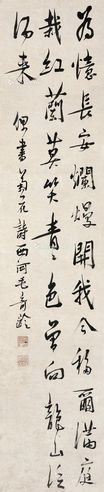 為憶長安爛熳開我今移爾滿庭
栽紅蘭莫笑青青色曾向龍山泛
酒來
偶書菊花詩西河毛奇齡